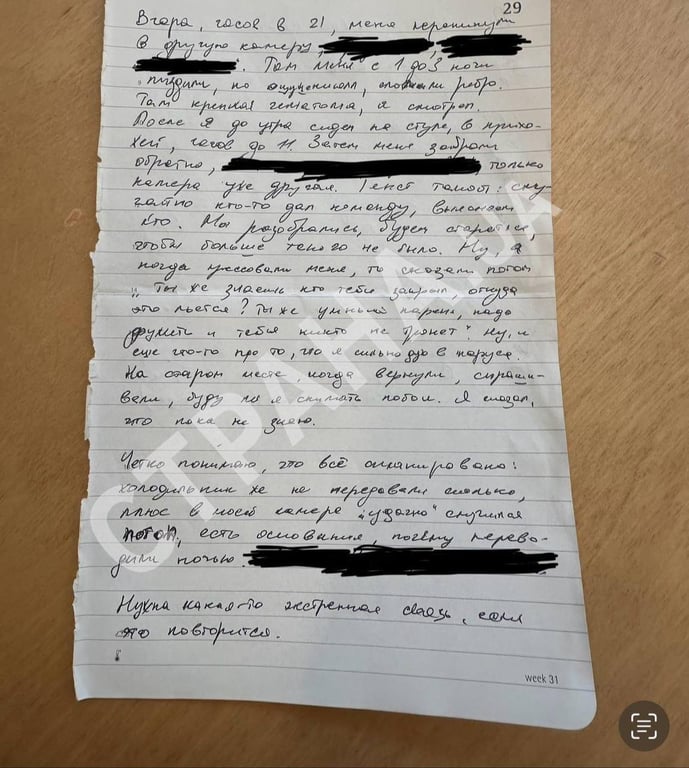 29
Вчера, часов в 21, меня перекинули
в другую камеру,
Там меня с 1 до 3 ночи
пиздили, по ощущениям, сломали ребро.
Там крепкая гематома, я смотрел.
После я до утра сидел на стуле, в прихо-
жей, часов до 11. Затем меня забрали
обратно, только
камера уже другая. Текст таков:
кто-то дал команду, выясняем
кто. Мы разобрались, будем стараться,
чтобы больше такого не было. Ну, а
когда прессовали меня, то сказали потом
"Ты же знаешь кто тебя закрыл, откуда
это льётся? Ты же умный парень, надо
дружить и тебя никто не тронет". Ну, и
еще что-то про то, что я сильно дую в паруса.
На старом месте, когда вернули, спраши-
вали, буду ли я снимать побои. Я сказал,
что пока не знаю.
Четко понимаю, что всё спланировано:
холодильник же не передавали сколько,
плюс в моей камере "удачно" случился
потоп, есть основания, почему перево-
дили ночью.
Нужна какая-то экстренная связь, если
это повторится.
week 31
СТРАНА.UA